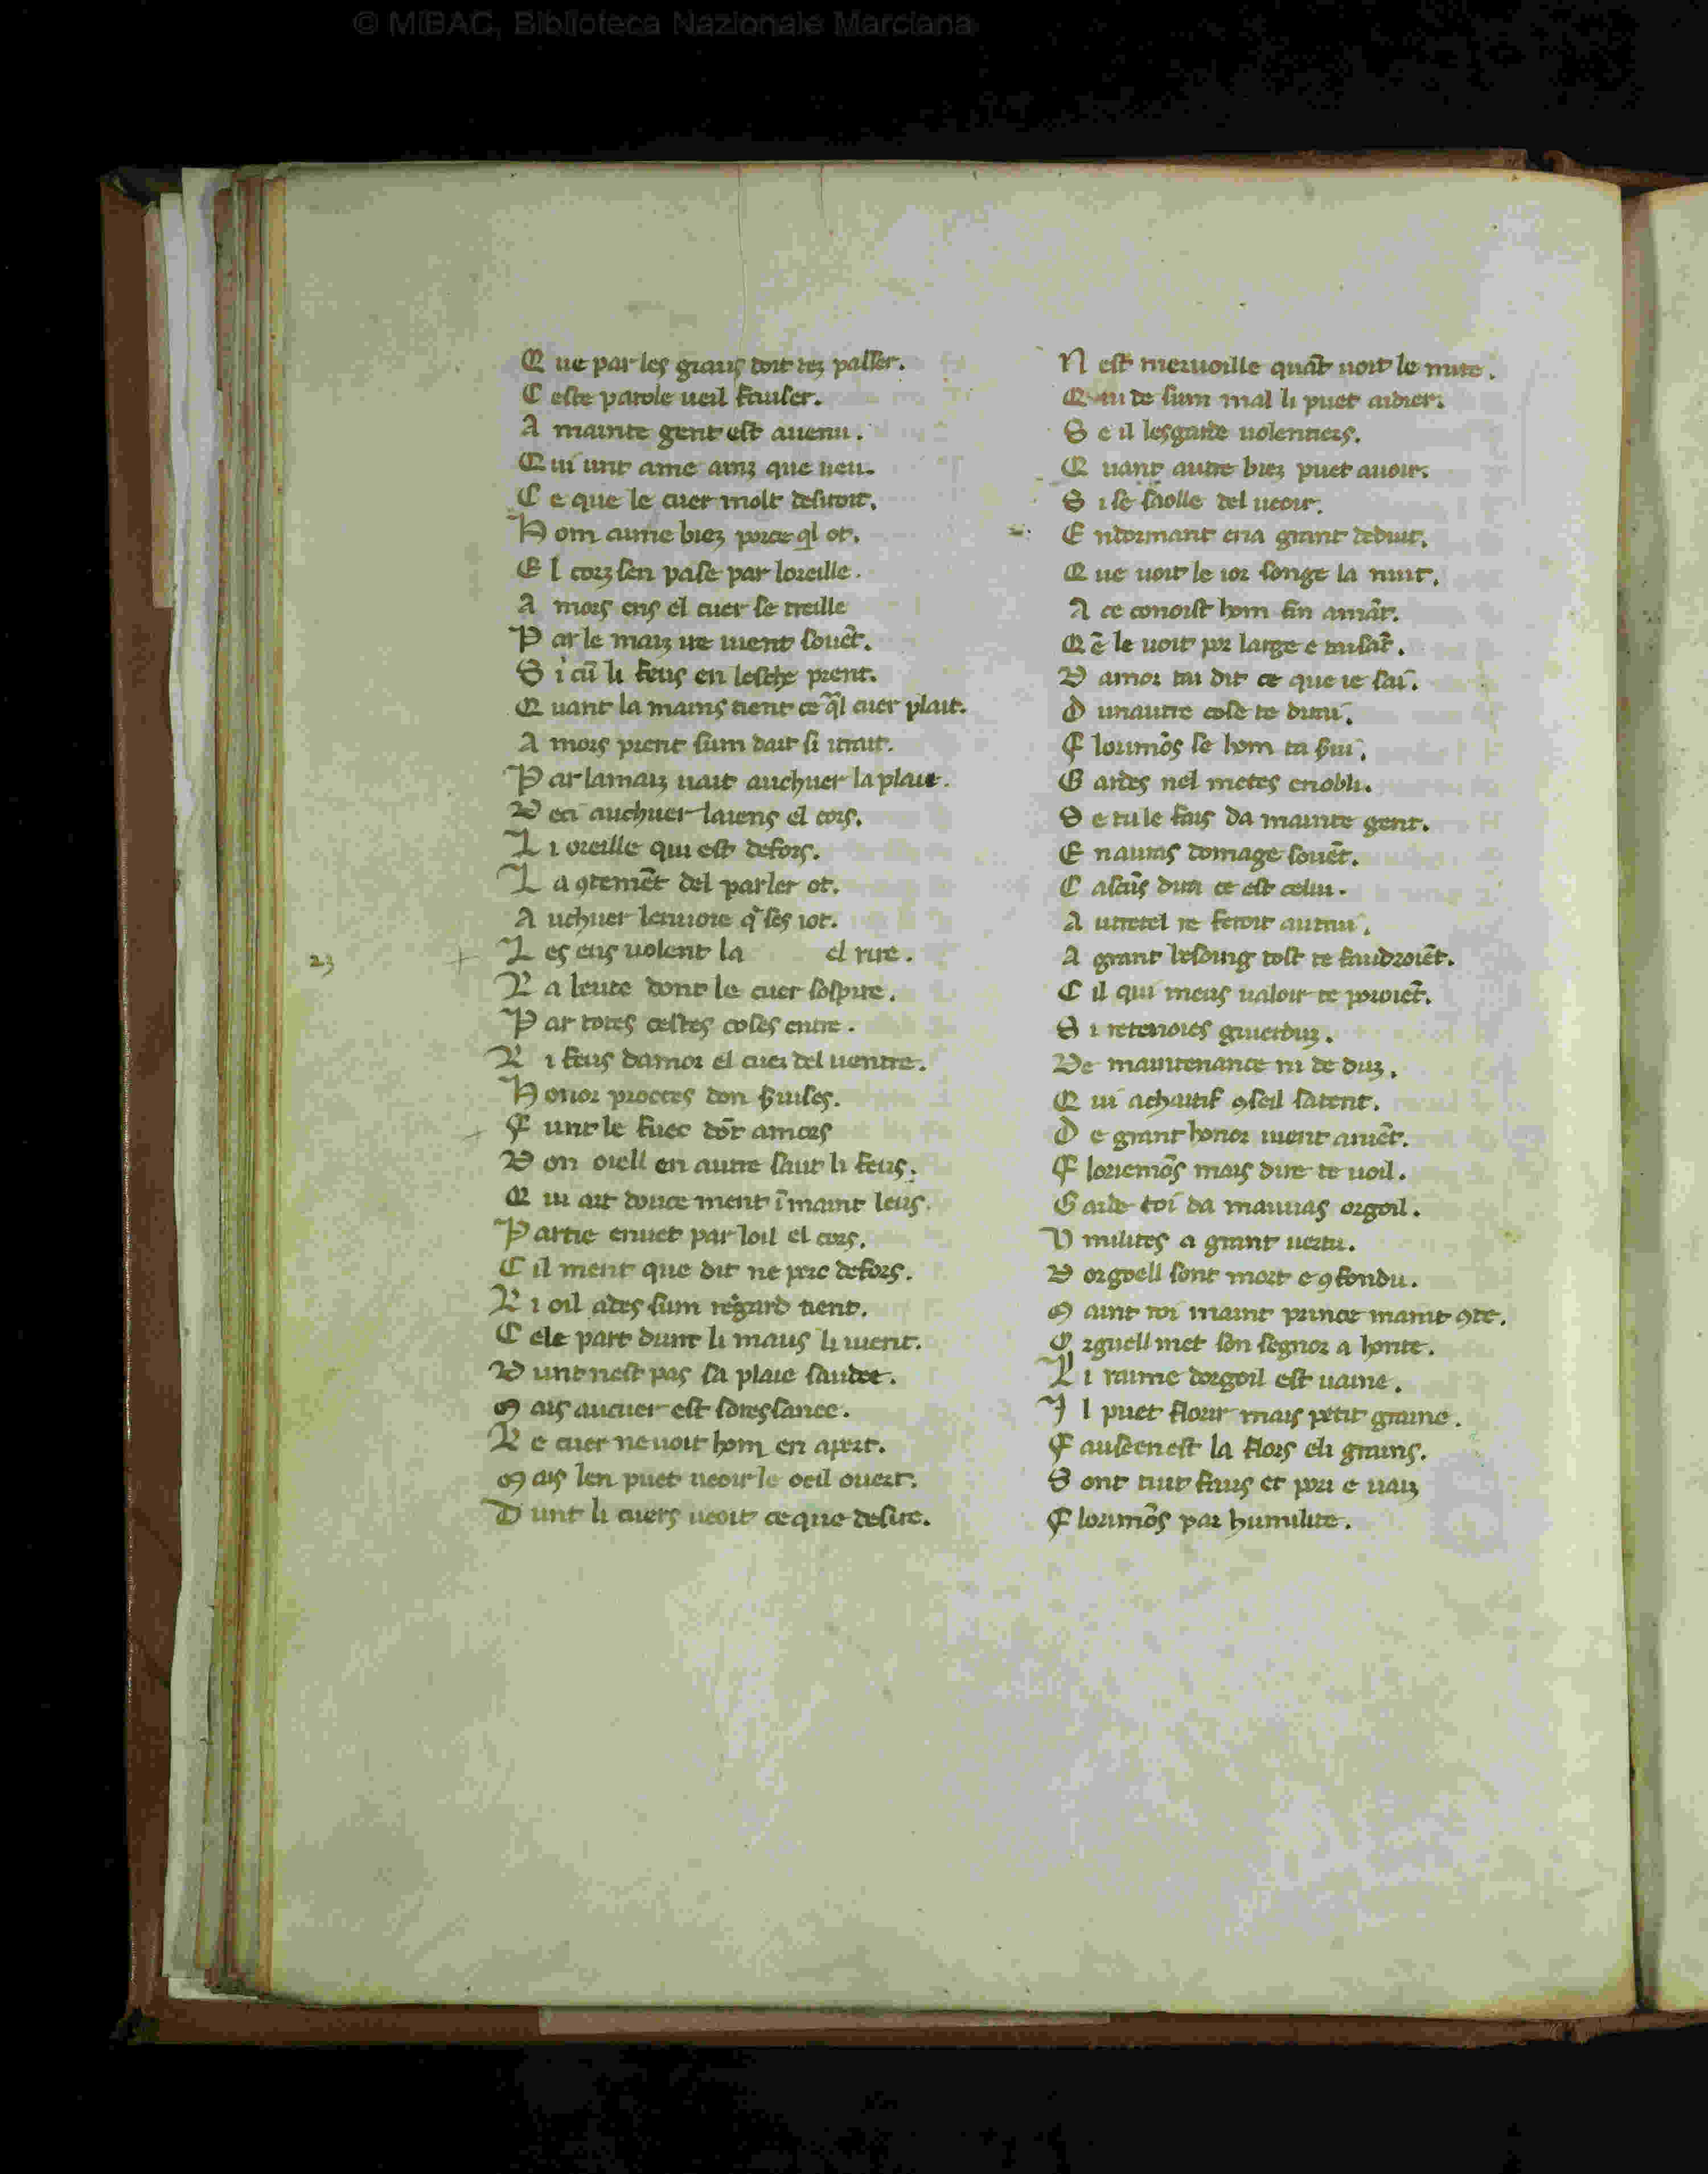 © MiBAC, Biblioteca Nazionale Marciana
Q ue par les graus doit rez passer.
C este parole ueil fauser.
A mainte gent est auenu.
Q ui unt ame ainz que ueu.
C e que le cuer molt desiroit.
H om aime biez porce ql ot.
E l corz sen pase par loreille.
A mors ens el cuer se treille
P ar le maiz ue uient souēt.
S i cū li feus en lesche prent.
Q uant la mains tient ce ql cuer plait.
A mors prent sum dart si trait.
P ar lamaiz uait auchuer la plaie.
D eci auchuer laiens el cors.
L i oreille qui est defors.
L a ꝯtemēt del parler ot.
A uchuer lenuoie q ses iot.
L es eus uolent la el rire.
23
L a leure dont le cuer sospire.
P ar totes cestes coses entre.
L i feus damor el cuer del uentre.
H onor proeces don s̄uises.
F unt le fuec dōt amors
D on oiell en autre saut li feus.
Q ui art douce ment ī maint leus.
P artie enuet par loil el cors.
C il ment que dit ne pere defors.
L i oil ades sum regard tient.
C ele part dunt li maus li uient.
D unt nest pas sa plaie saudee.
M ais aucuer est sores sanee.
L e cuer ne uoit hom en apert.
M ais len puet ueoir le oeil ouert.
D unt li cuers ueoit ce que desire.
N est meruoille quāt uoit le mire.
Q ui de sum mal li puet aidier.
S e il lesgarde uolentiers.
Q uant autre biez puet auoir.
S i se saolle del ueoir.
E ndormant ena grant deduit.
Q ue uoit le ior songe la nuit.
A ce conoist hom fin amāt.
Q ē le uoit por large e
D amor tai dit ce que ie sai.
D unautre cose te dirai.
F lorimōs se hom ta s̄ui.
G ardes nel metes enobli.
S e tu le fais da mainte gent.
E nauras domage souēt.
C ascūs dira ce est celui.
A utretel te feroit autrui.
A grant besoing tost te faudroiēt.
C il qui meus ualoir te poroiēt.
S i retenoies
De maintenance ni de duz.
Q ui achaitif ꝯseil satent.
D e grant honor uient aniēt.
F loriemōs mais dire te uoil.
G arde toi da mauuas orgoil.
V milites a grant uertu.
D orgoell sont mort e ꝯfondu.
M aint roi maint prince maint ꝯte.
O rguell met son segnor a honte.
L i raime dorgoil est uaine.
I l puet florir mais petit graine.
F ausceenest la flors eli grains.
S ont tuit faus et poi e uaiz
F lorimōs par humilite.